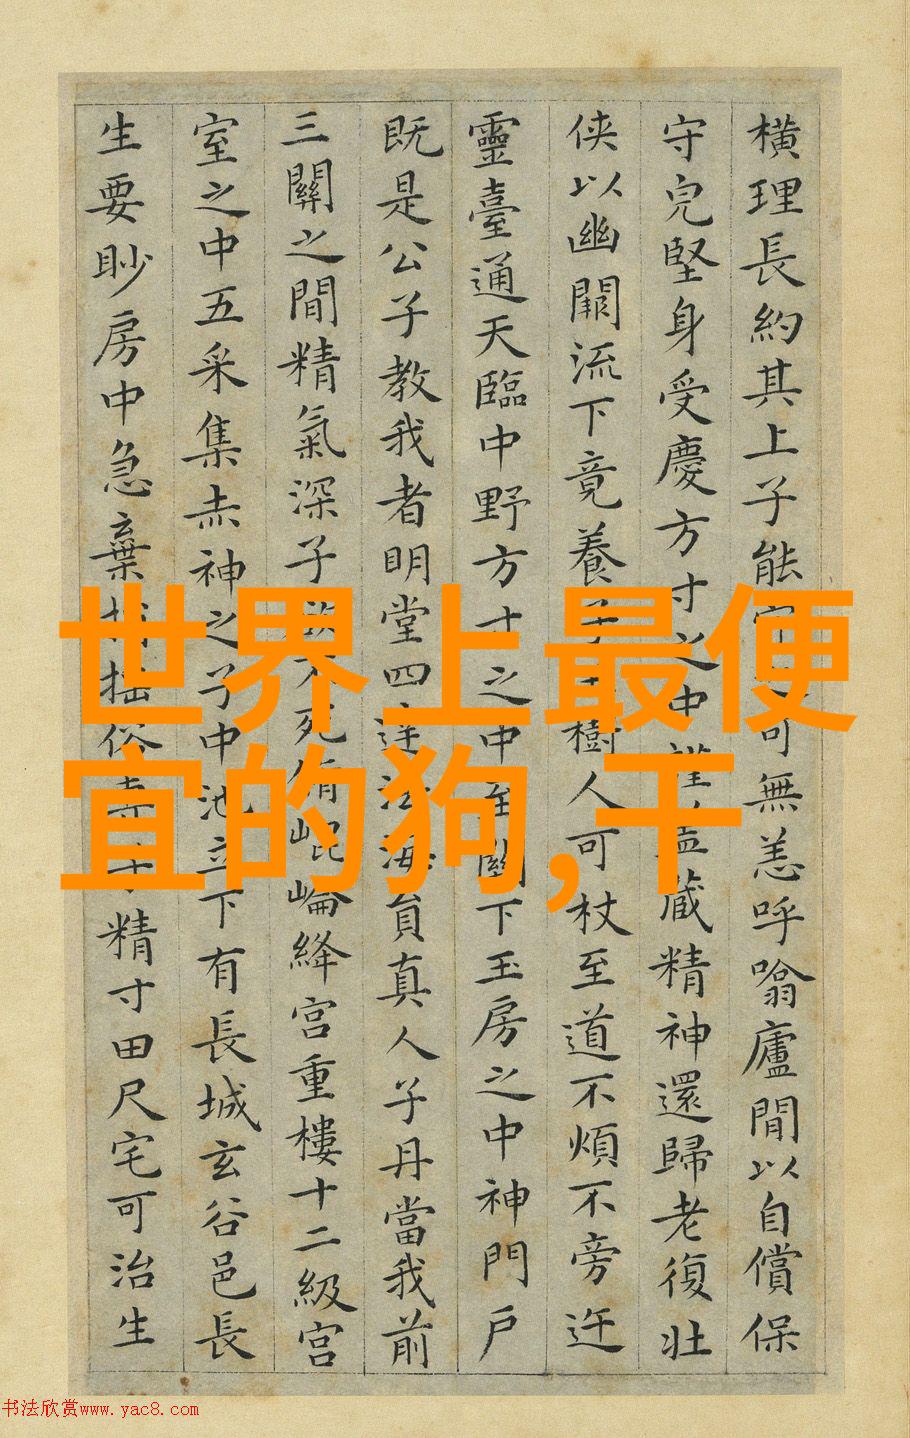 橫理長約其上子能可無恙呼噏廬間以自償保
守完堅身受慶方寸之中謹蓋藏精神還歸老復壯
俠以幽闕流下竟養子樹人可杖至道不煩不旁迕
靈臺通天臨中野方寸之中至關下玉房之中神門戶
既是公子教我者明堂四達法海員真人子丹當我前
三關之間精氣深子欲不死脩崐崘絳宮重樓十二級宮
室之中五采集赤神之子中池立下有長城玄谷邑長
生要眇房中急棄捐俗專子精寸田尺宅可治生
世界上最便
宜的狗,干
书法欣赏www.yac8.com